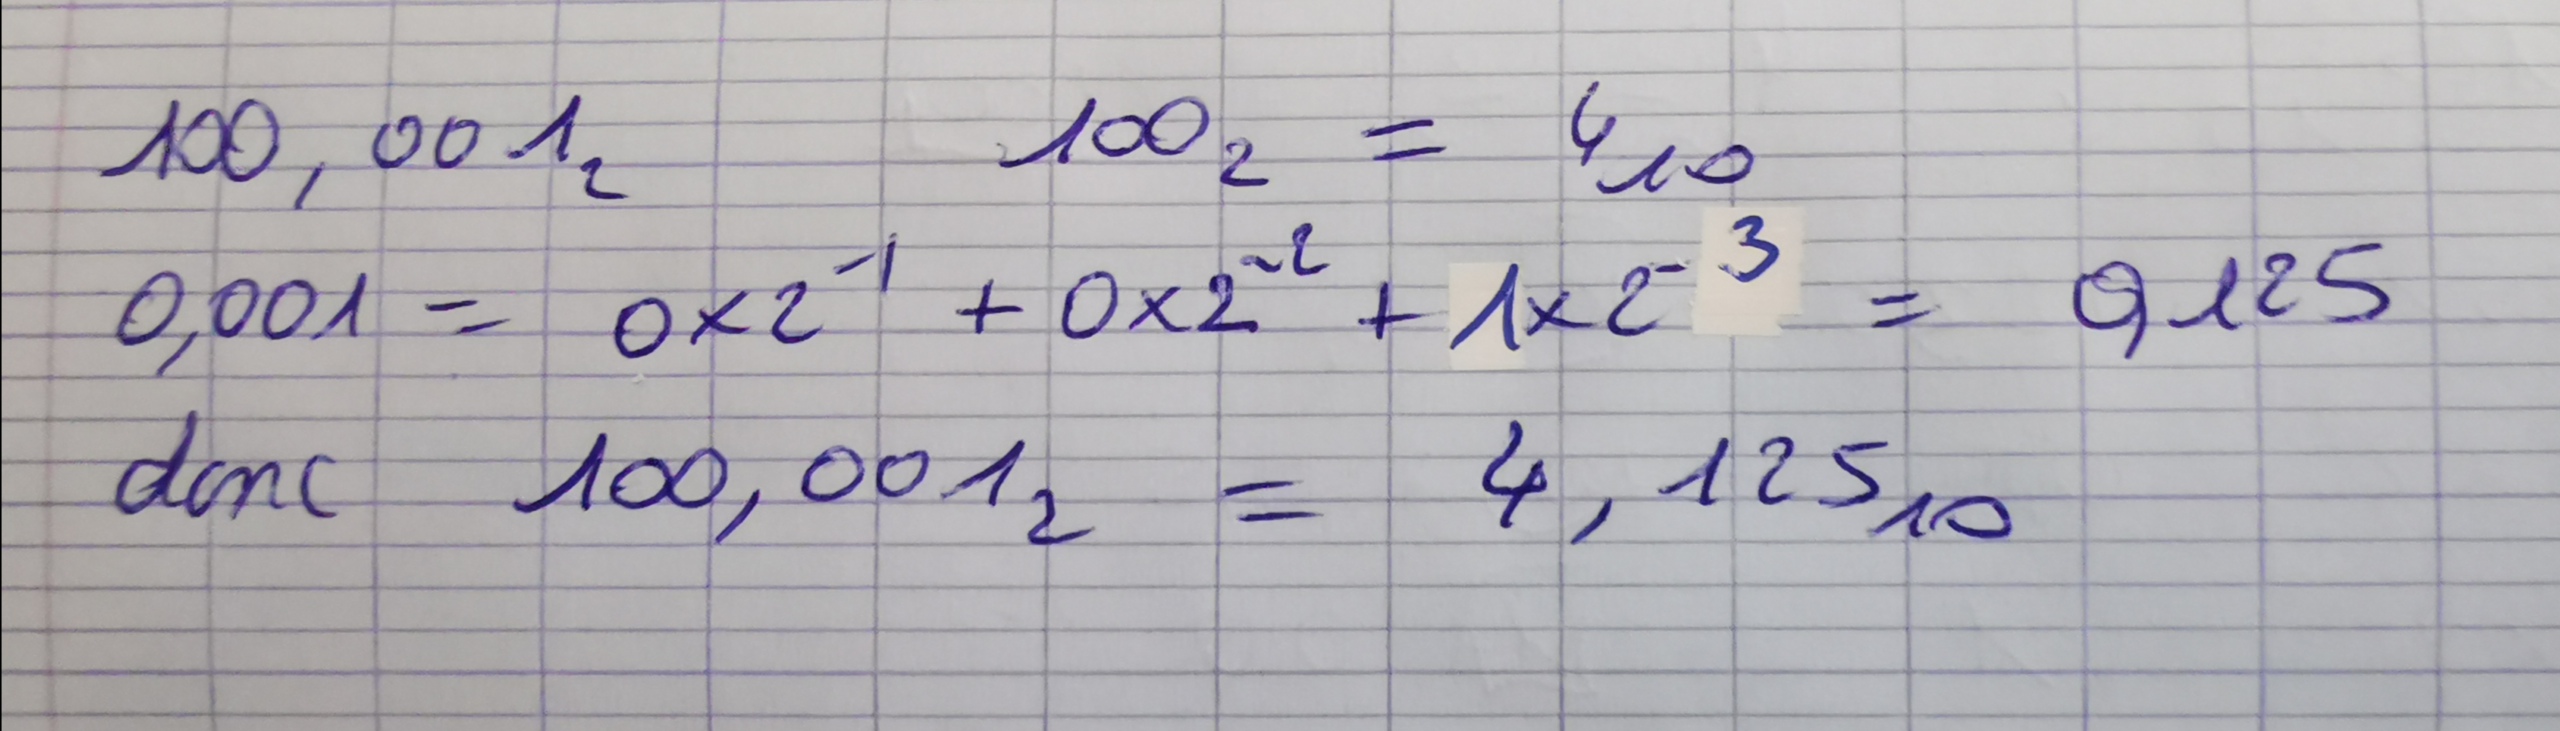 100,001₂ 100₂ = 4₁₀
0,001 = 0×2⁻¹ + 0×2⁻² + 1×2⁻³ = 0,125
donc 100,001₂ = 4,125₁₀